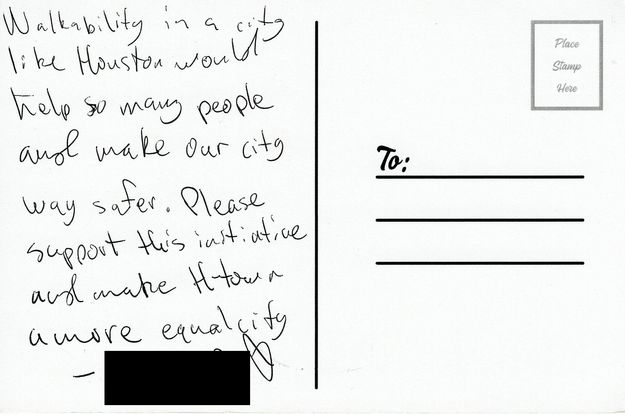 Walkability in a city
like Houston would
help so many people
and make our city
way safer. Please
support this initiative
and make H-town
a more equal city
-
Place
Stamp
Here
To: